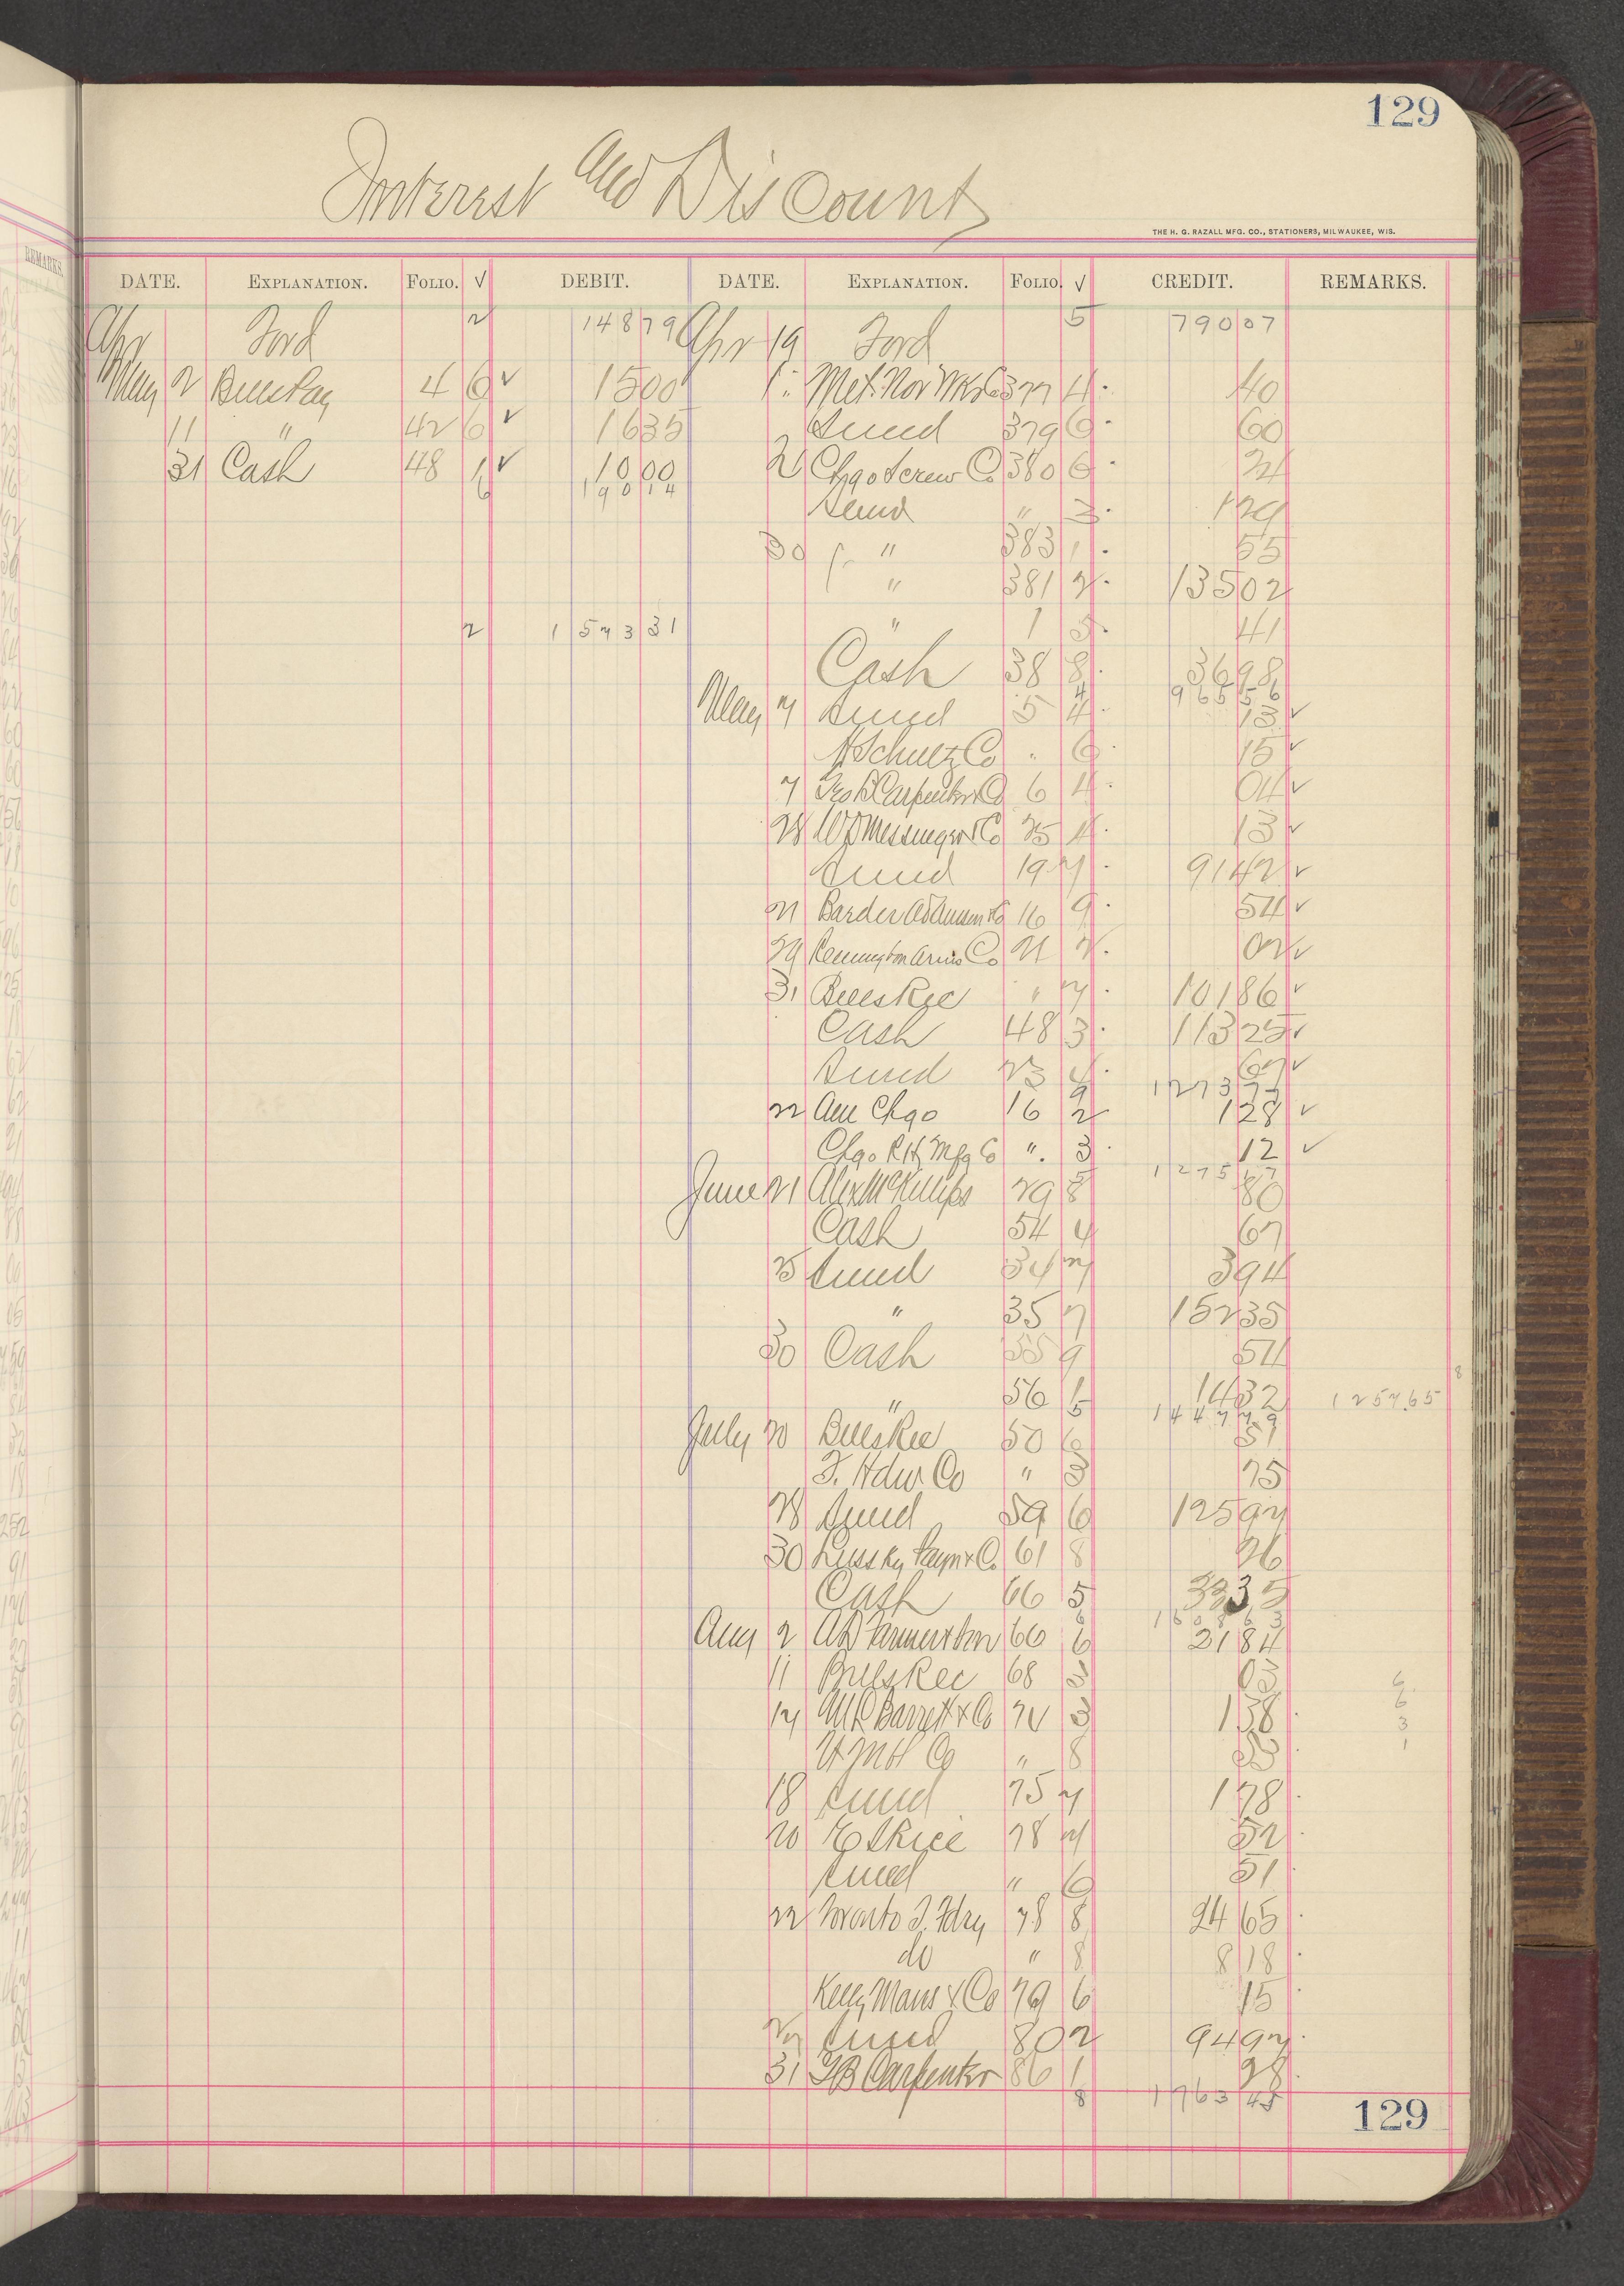 129
Interest and Discount
THE H. G. RAZALL MFG. CO., STATIONERS, MILWAUKEE, WIS.
REMARKS.
DATE. EXPLANATION. FOLIO. √ DEBIT. DATE. EXPLANATION. FOLIO. √ CREDIT. REMARKS.
Apr Ford 2 148 79 Apr 19 Ford 5 790 07
May 2 Bills Pay 4 6 ✓ 15 00 1 40
11 " 42 6 ✓ 16 35 Sund 379 6 60
31 Cash 48 1 ✓ 10 00 2 Chgo Screw Co 380 6 24
6 190 14
Sund " 3 1 29
30 " 383 1 55
" 381 2 135 02
2 1 573 31 " 1 5 41
Cash 38 8 36 98
4 965 56
May 7 Sund 5 4 13 ✓
H Schultz Co " 6 15 ✓
7 Geo B Carpenter & Co 6 4 04 ✓
28 W J Messinger & Co 25 4 13 ✓
Sund 19 7 91 42 ✓
21 16 9 54 ✓
29 Remington Arms Co 21 2 02 ✓
31 Bills Rec " 7 101 86 ✓
Cash 48 3 113 25 ✓
Sund 23 4 67 ✓
9 1273 77
22 Am Chgo 16 2 1 28 ✓
Chgo R H Mfg Co " 3 12 ✓
1275 17
June 21 Alex McKillips 29 8 80
Cash 54 4 67
25 Sund 34 7 3 94
" 35 7 152 35
30 Cash 55 9 54
" 56 1 14 32 1257.65 8
5 1447 79
July 20 Bills Rec 50 6 51
F. Hdw Co " 3 75
28 Sund 59 6 125 97
30 61 8 26
Cash 66 5 33 35
6 1608 63
Aug 2 66 6 21 84
11 Bills Rec 68 3 03 6
17 M R Barrett & Co 74 3 1 58 6
3
U M H Co " 8 83 1
18 Sund 75 7 1 78
20 78 7 52
Sund " 6 51
22 Toronto F. Fdry 78 8 24 65
do " 8 8 18
Kelly Maus & Co 79 6 15
27 Sund 80 2 94 97
31 G B Carpenter 86 1 28
8 1763 45
129